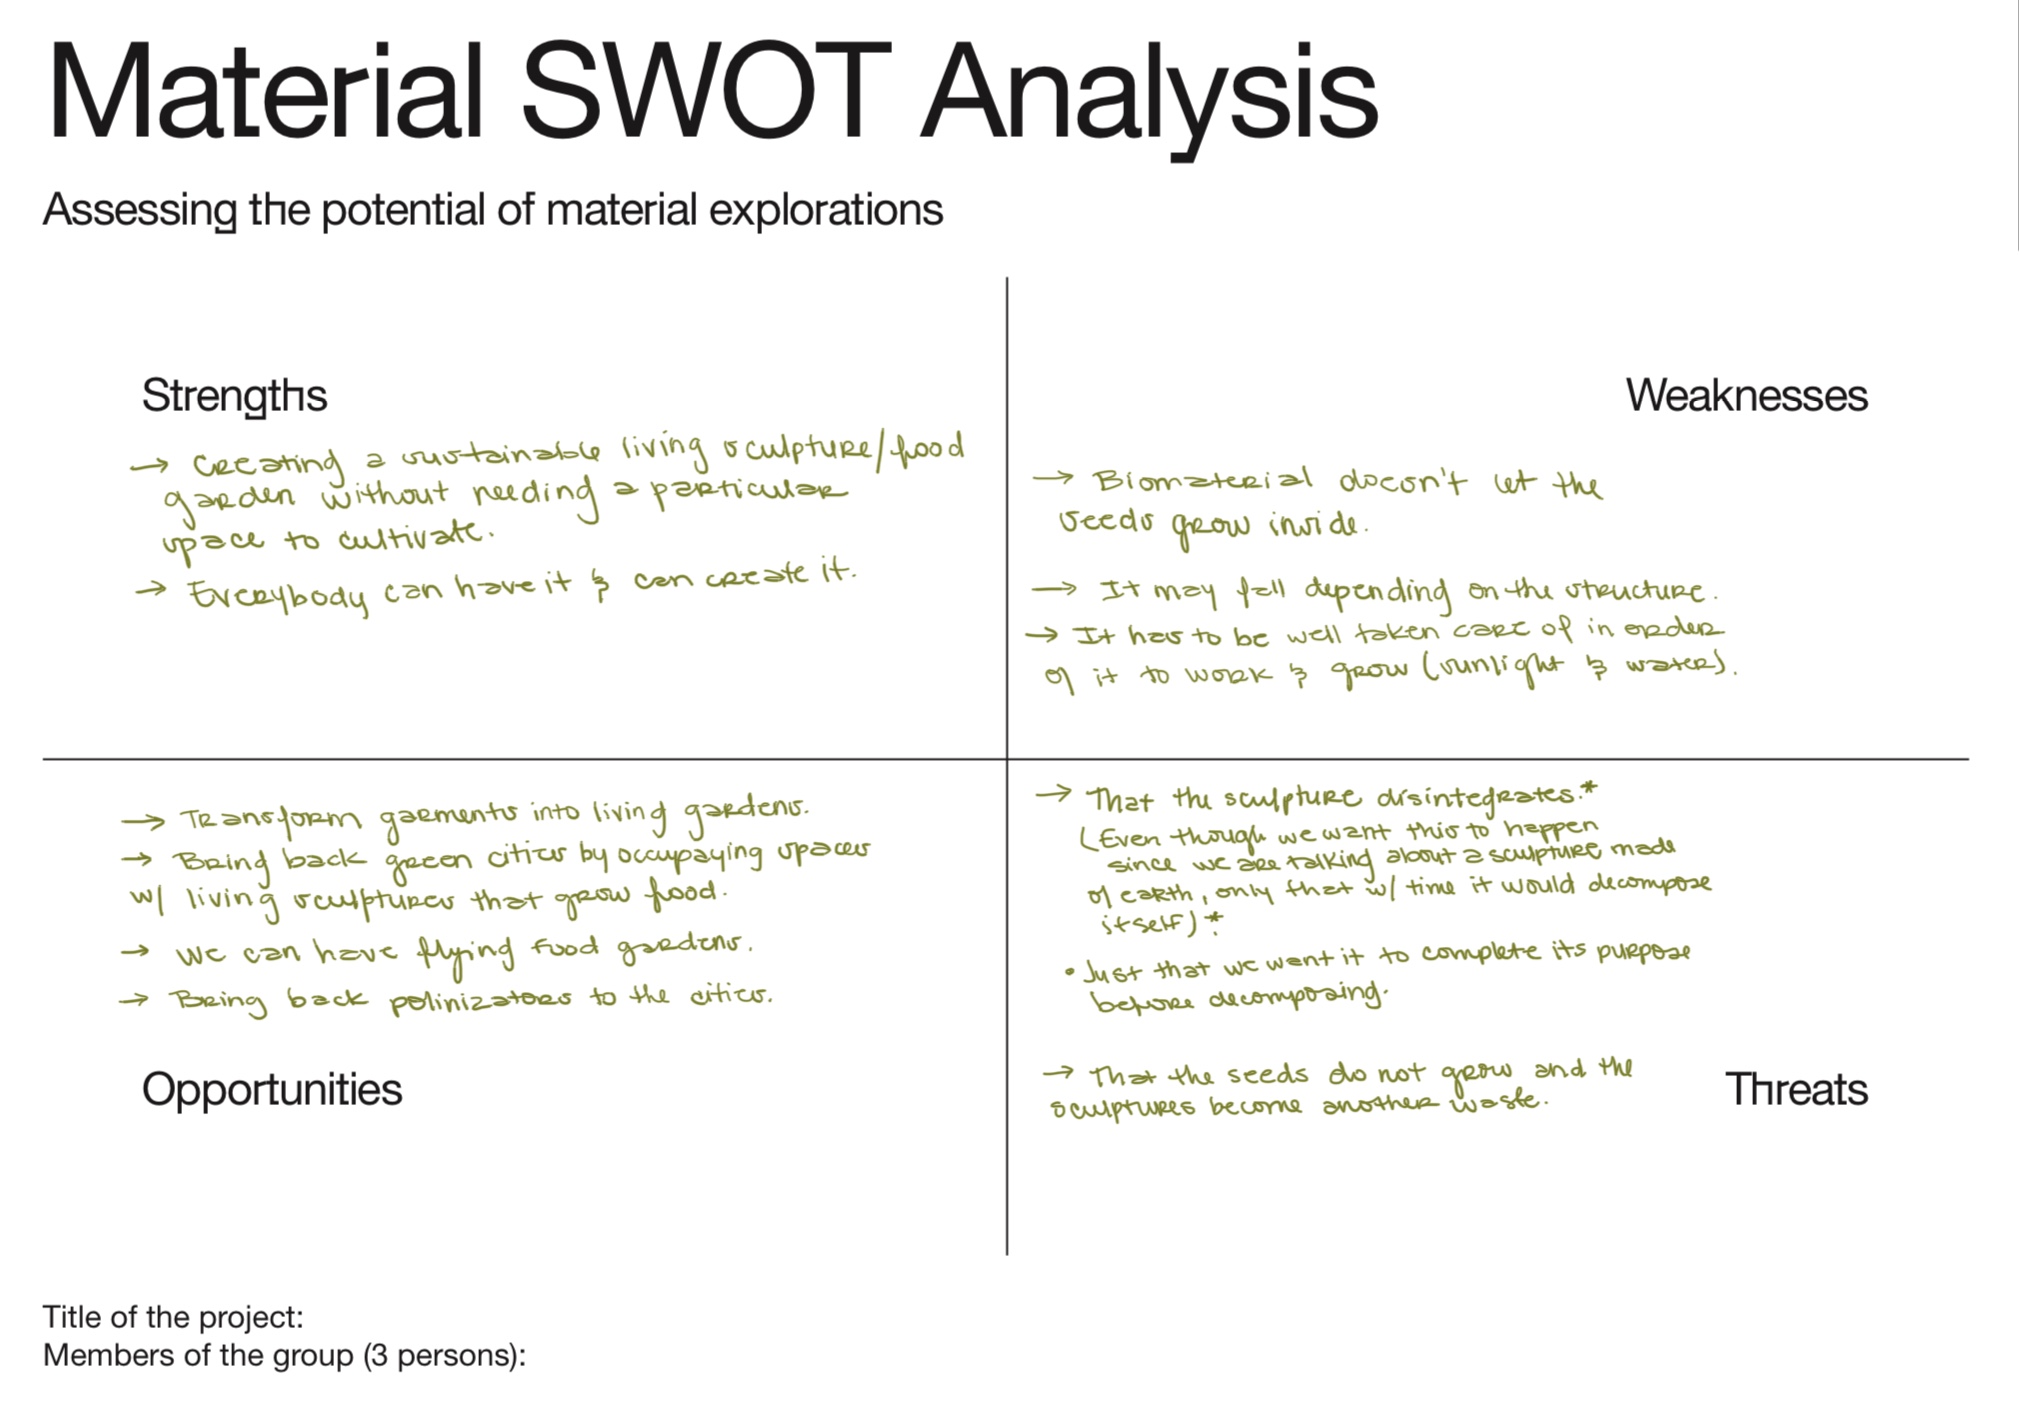 Material SWOT Analysis
Assessing the potential of material explorations
Strengths
→ Creating a sustainable living sculpture/food
garden without needing a particular
space to cultivate.
→ Everybody can have it & can create it.
Weaknesses
→ Biomaterial doesn't let the
seeds grow inside.
→ It may fall depending on the structure.
→ It has to be well taken care of in order
of it to work & grow (sunlight & water).
→ Transform garments into living gardens.
→ Bring back green cities by occupaying spaces
w/ living sculptures that grow food.
→ We can have flying food gardens.
→ Bring back polinizators to the cities.
Opportunities
→ That the sculpture disintegrates.*
(Even though we want this to happen
since we are talking about a sculpture made
of earth, only that w/ time it would decompose
itself)*
• Just that we want it to complete its purpose
before decomposing.
→ That the seeds do not grow and the
sculptures become another waste.
Threats
Title of the project:
Members of the group (3 persons):